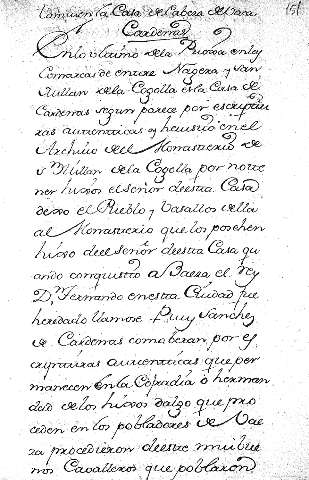 Comiença la Casa de Cabeza de Vaca 151
Cardenas
En lo ultimo de la Rioxa en las
Comarcas de entre Nagera y San
Millan de la Cogolla esta la Casa de
Cardenas segun parece por escriptu
ras autenticas q he visto en el
Archivo del Monasterio de
Sn Millan de la Cogolla por no te
ner hixos el señor de esta Casa
dexo el Pueblo y Vasallos della
al Monasterio que los posehen
hixo de el señor de esta Casa qu
ando conquisto a Baeza el Rey
Dn Fernando en esta Ciudad fue
heredado llamose Ruy Sanchez
de Cardenas como beran por es
cripturas autenticas que per
manecen en la Cofradia o herman
dad de los hixos dalgo que pro
ceden en los pobladores de Vae
za procedieron de este mui bue
nos Cavalleros que poblaron